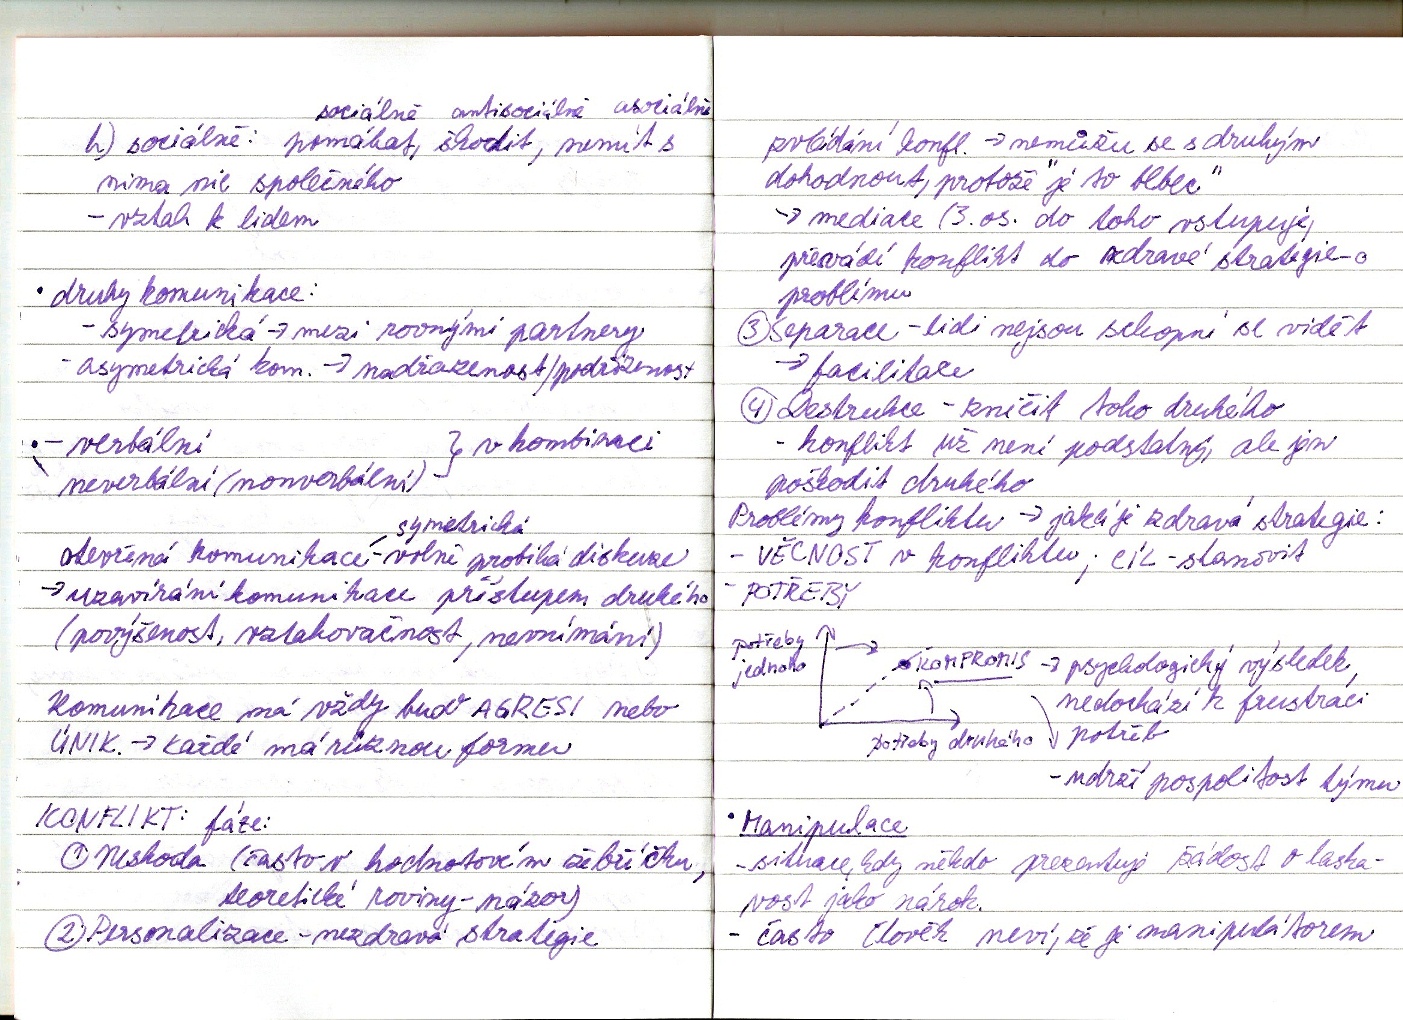 sociálně antisociálně asociálně
h) sociálně: pomáhat, škodit, nemít s
nima nic společného
- vztah k lidem
• druhy komunikace:
- symetrická → mezi rovnými partnery
- asymetrická kom. → nadřazenost/podřízenost
• - verbální } v kombinaci
neverbální (nonverbální) -
symetrická
otevřená komunikace - volně probíhá diskuze
→ uzavírání komunikace přístupem druhého
(povýšenost, vztahovačnost, nevnímání)
Komunikace má vždy buď AGRESI nebo
ÚNIK. → každé má různou formu
KONFLIKT: fáze:
① Neshoda (často v hodnotovém žebříčku,
teoretické roviny - názor)
② Personalizace - nezdravá strategie
zvládání konfl. → nemůžu se s druhým
dohodnout, protože "je to blbec"
→ mediace (3. os. do toho vstupuje,
převádí konflikt do zdravé strategie - o
problému
③ Separace - lidi nejsou schopni se vidět
→ facilitace
④ Destrukce - zničit toho druhého
- konflikt už není podstatný, ale jen
poškodit druhého
Problémy konfliktu → jaká je zdravá strategie:
- VĚCNOST v konfliktu; CÍL - stanovit
- POTŘEBY
potřeby
jednoho
KOMPROMIS → psychologický výsledek,
nedochází k frustraci
potřeb
potřeby druhého
- udrží pospolitost týmu
• Manipulace
- situace, kdy někdo prezentuje žádost o laska-
vost jako nárok.
- často člověk neví, že je manipulátorem